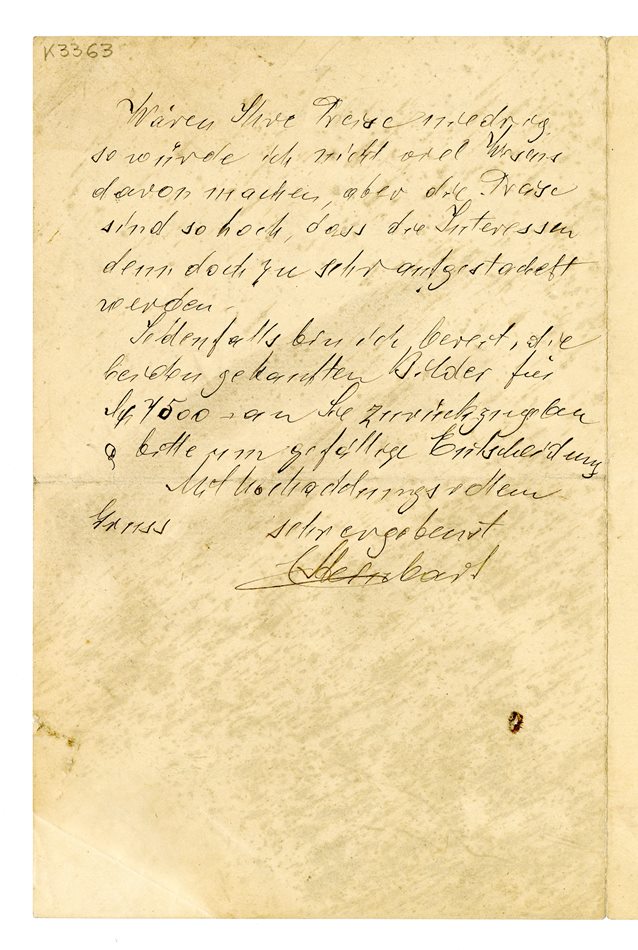 K3363
Wären Ihre Preise niedrig,
so würde ich nicht viel Wesens
davon machen, aber die Preise
sind so hoch, dass die Interessen
denn doch zu sehr aufgestachelt
werden.
Jedenfalls bin ich bereit, die
beiden gekauften Bilder für
7500 – an Sie zurückzugeben
& bitte um gefällige Entscheidung
Mit hochachtungsvollem
Gruss sehr ergebenst